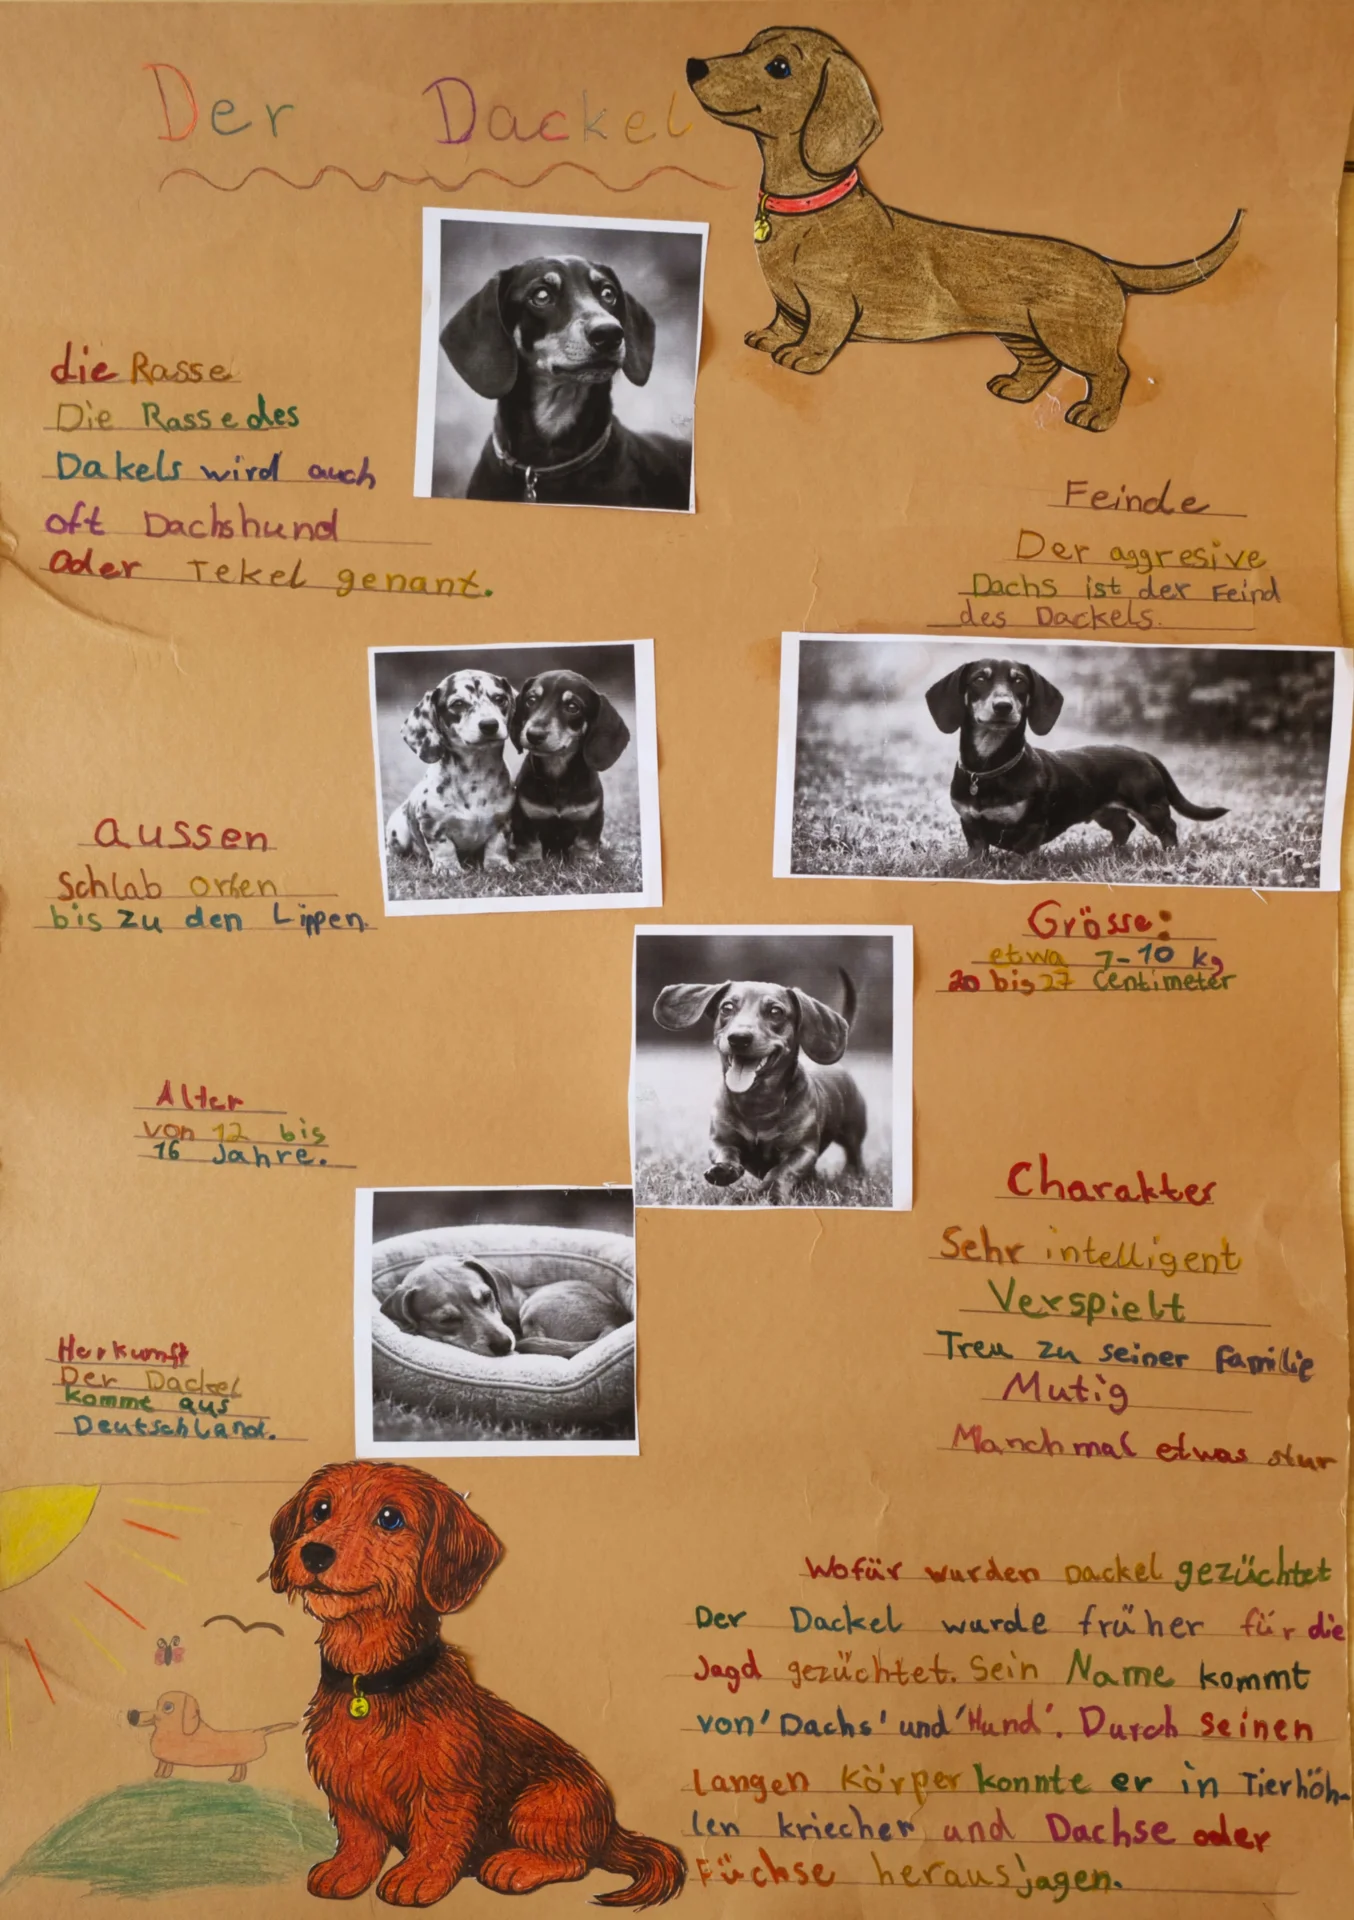 Der Dackel
die Rasse
Die Rasse des
Dakels wird auch
oft Dachshund
Oder Tekel genant.
Feinde
Der aggresive
Dachs ist der Feind
des Dackels.
aussen
Schlab orhen
bis zu den Lippen.
Grösse:
etwa 7-10 kg
20 bis 27 Centimeter
Alter
von 12 bis
16 Jahre.
Charakter
Sehr intelligent
Verspielt
Treu zu seiner Familie
Mutig
Manchmal etwas stur
Herkunft
Der Dackel
kommt aus
Deutschland.
Wofür wurden Dackel gezüchtet
Der Dackel wurde früher für die
Jagd gezüchtet. Sein Name kommt
von 'Dachs' und 'Hund'. Durch seinen
langen Körper konnte er in Tierhöh-
len kriechen und Dachse oder
Füchse herausjagen.